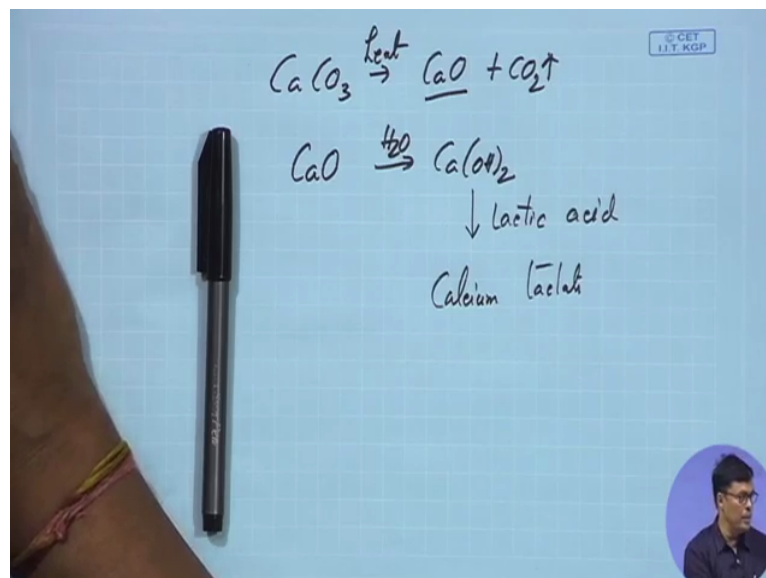 © CET
I.I.T. KGP
CaCO₃ →(heat) CaO + CO₂↑
CaO →(H₂O) Ca(OH)₂
↓ Lactic acid
Calcium Lactate